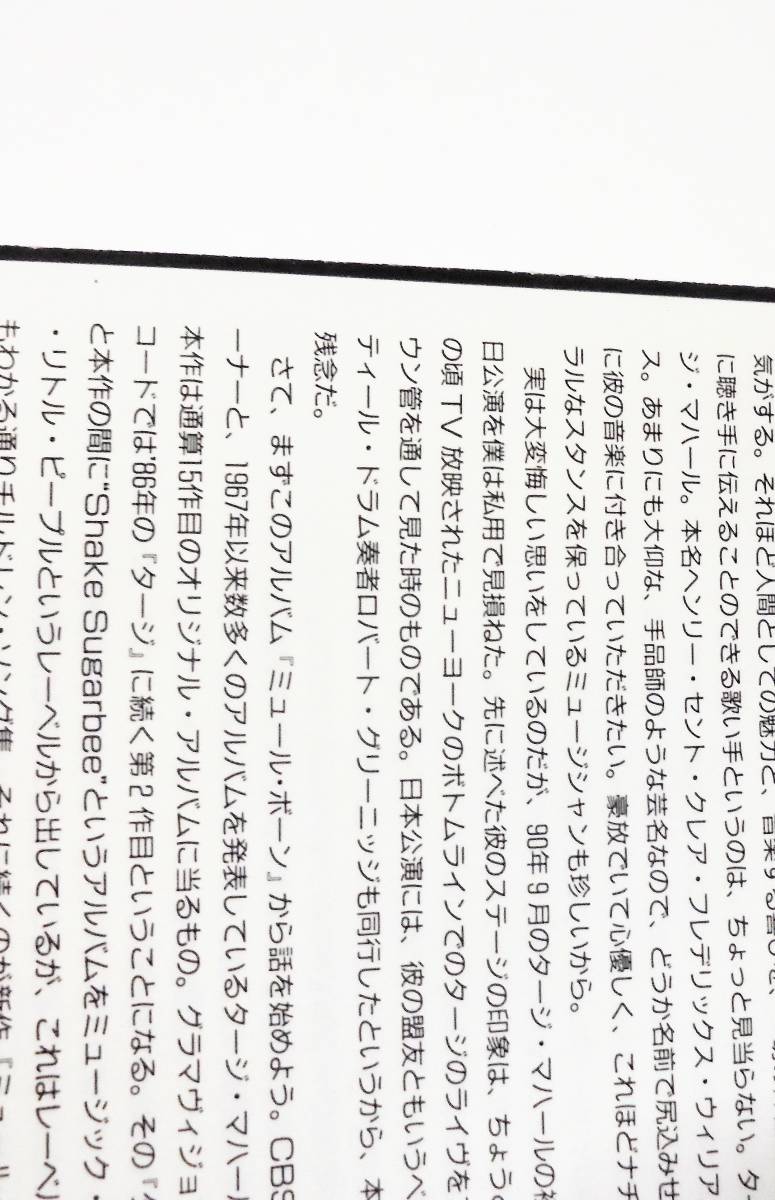 気がする。それほど人間としての魅力と、音楽する喜びを、
に聴き手に伝えることのできる歌い手というのは、ちょっと見当らない。ター
ジ・マハール。本名ヘンリー・セント・クレア・フレデリックス・ウィリア
ス。あまりにも大仰な、手品師のような芸名なので、どうか名前で尻込みせ
に彼の音楽に付き合っていただきたい。豪放でいて心優しく、これほどナチ
ラルなスタンスを保っているミュージシャンも珍しいから。
実は大変悔しい思いをしているのだが、90年9月のタージ・マハールの
日公演を僕は私用で見損ねた。先に述べた彼のステージの印象は、ちょうど
の頃TV放映されたニューヨークのボトムラインでのタージのライヴを
ウン管を通して見た時のものである。日本公演には、彼の盟友ともいうべ
ティール・ドラム奏者ロバート・グリーニッジも同行したというから、本
残念だ。
さて、まずこのアルバム『ミュール・ボーン』から話を始めよう。CBS
ーナーと、1967年以来数多くのアルバムを発表しているタージ・マハール
本作は通算15作目のオリジナル・アルバムに当るもの。グラマヴィジョ
コードでは'86年の『タージ』に続く第2作目ということになる。その『
と本作の間に“Shake Sugarbee”というアルバムをミュージック・
・リトル・ピープルというレーベルから出しているが、これはレーベル
もわかる通りチルドレン・ソング集。それに続くのが新作『ミュール